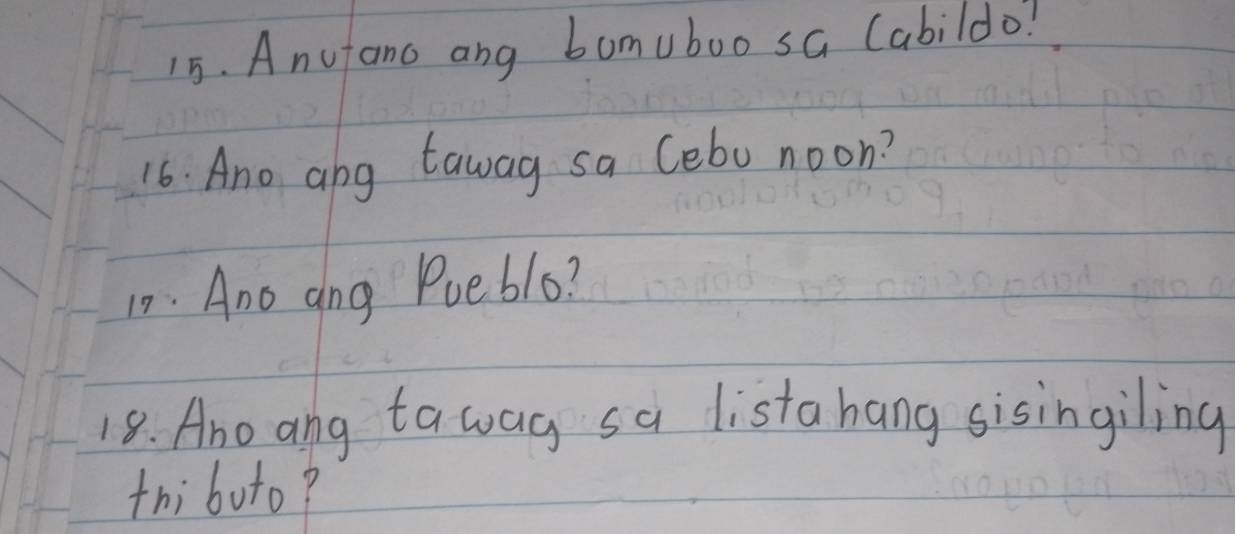 15. Anu-ano ang bumubuo sa Cabildo?
16. Ano ang tawag sa Cebu noon?
17. Ano ang Pueblo?
18. Ano ang tawag sa listahang sisingiling
tributo?